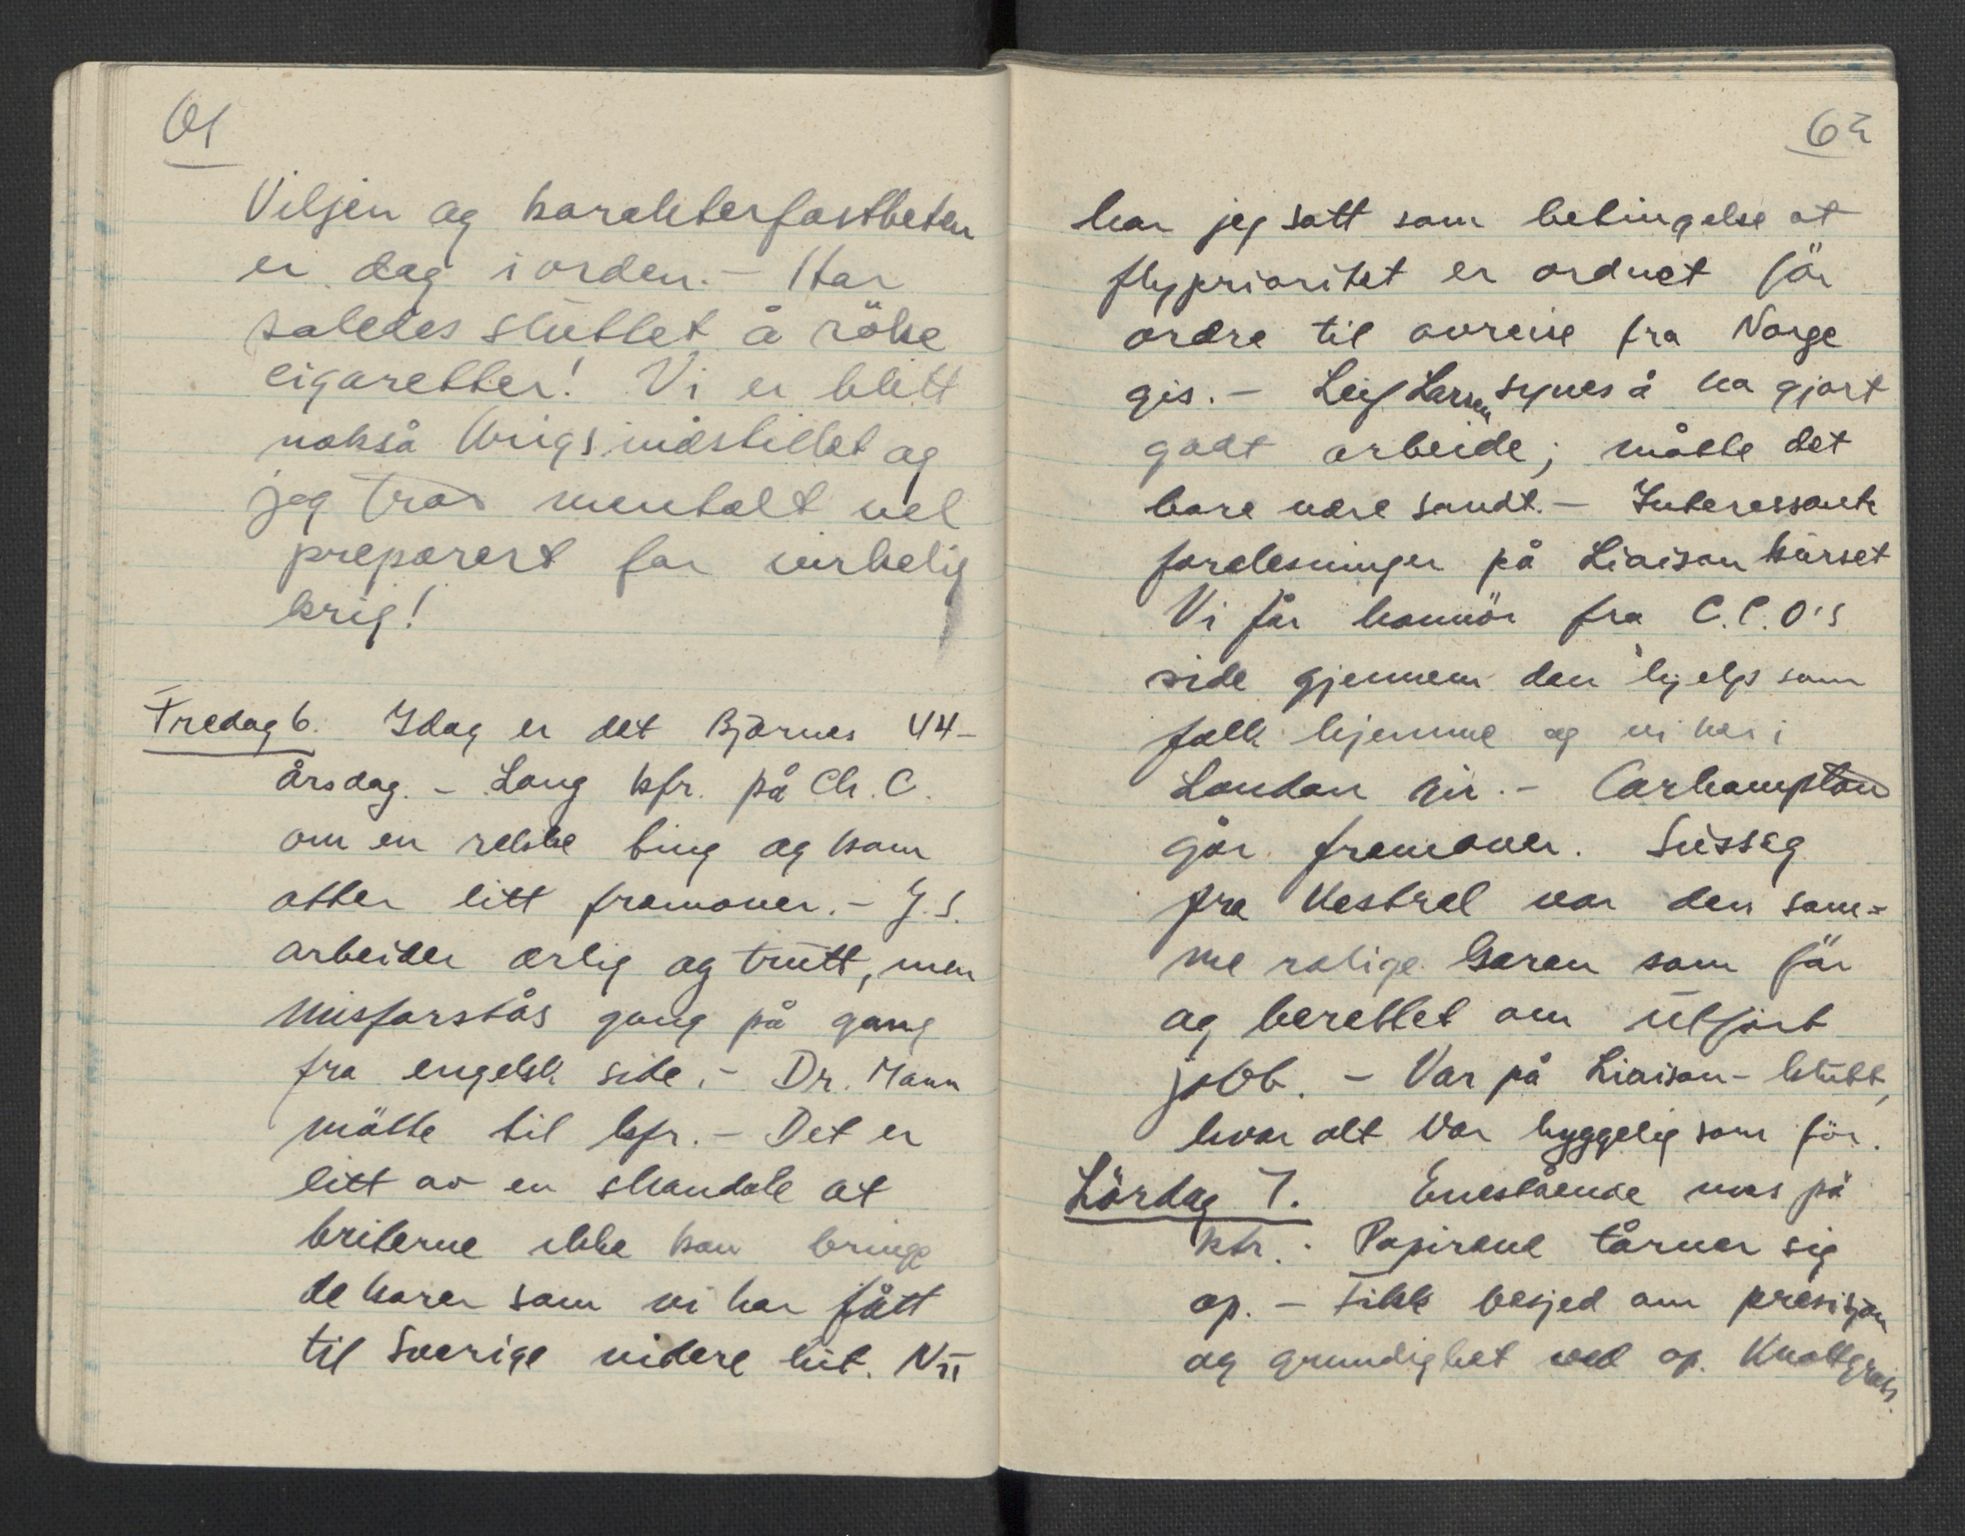 61
Viljen og karakterfastheten
er dag i orden. - Har
således sluttet å röke
cigaretter! Vi er blitt
nokså krigsindstillet og
jeg tror mentalt vel
preparert for virkelig
krig!
Fredag 6. Idag er det Bjarnes 44-
årsdag. - Lang kfr. på Ch. C.
om en rekke ting og kom
atter litt framover. - J.S.
arbeider ærlig og trutt, men
misforstås gang på gang
fra engelsk side. - Dr. Mann
måtte til kfr. - Det er
litt av en skandale at
briterne ikke kan bringe
de karer som vi har fått
til Sverige videre hit. Nu
62
har jeg satt som betingelse at
flyprioritet er ordnet för
ordre til avreise fra Norge
gis. - Leif Larsen synes å ha gjort
godt arbeide; måtte det
bare være sandt. - Interessante
forelesninger på Liaison kurset
Vi får honnör fra C.C.O's
side gjennem den hjelp som
folk hjemme og vi her i
London gir. - Carhampton
går fremover. Sussag
fra Kestrel var den sam-
me rolige karen som för
og berettet om utfört
jobb. - Var på Liaison-klubb,
hvor alt var hyggelig som för.
Lördag 7. Enestående mas på
ktr. Papirene tårner sig
op. - Fikk besjed om presisjon
og grundighet ved op. Knottgrass.